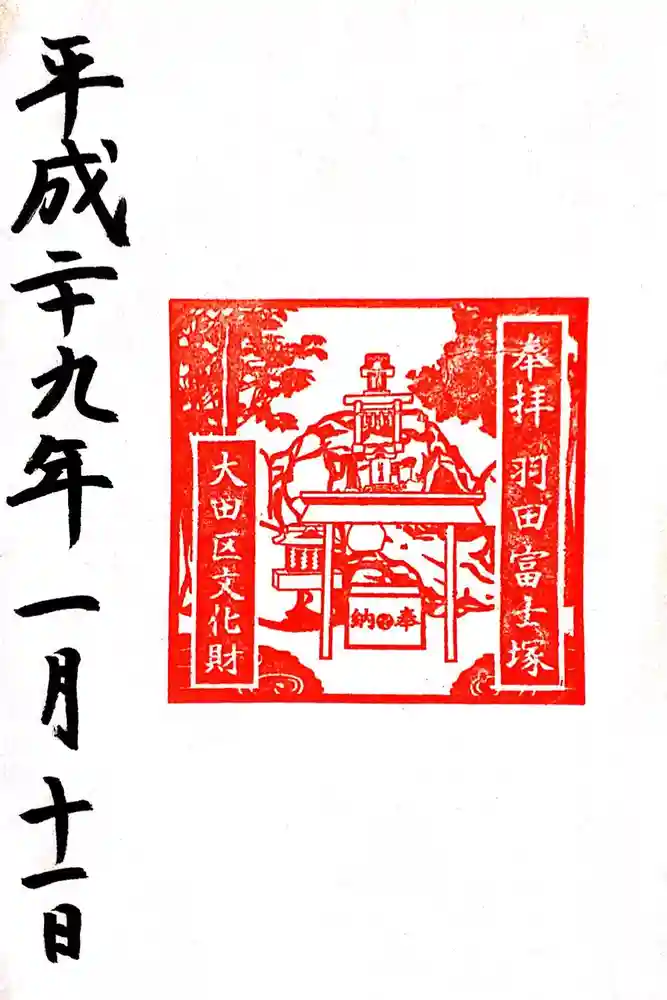 奉拝 羽田富士塚
大田区文化財
納奉
平成二十九年一月十一日